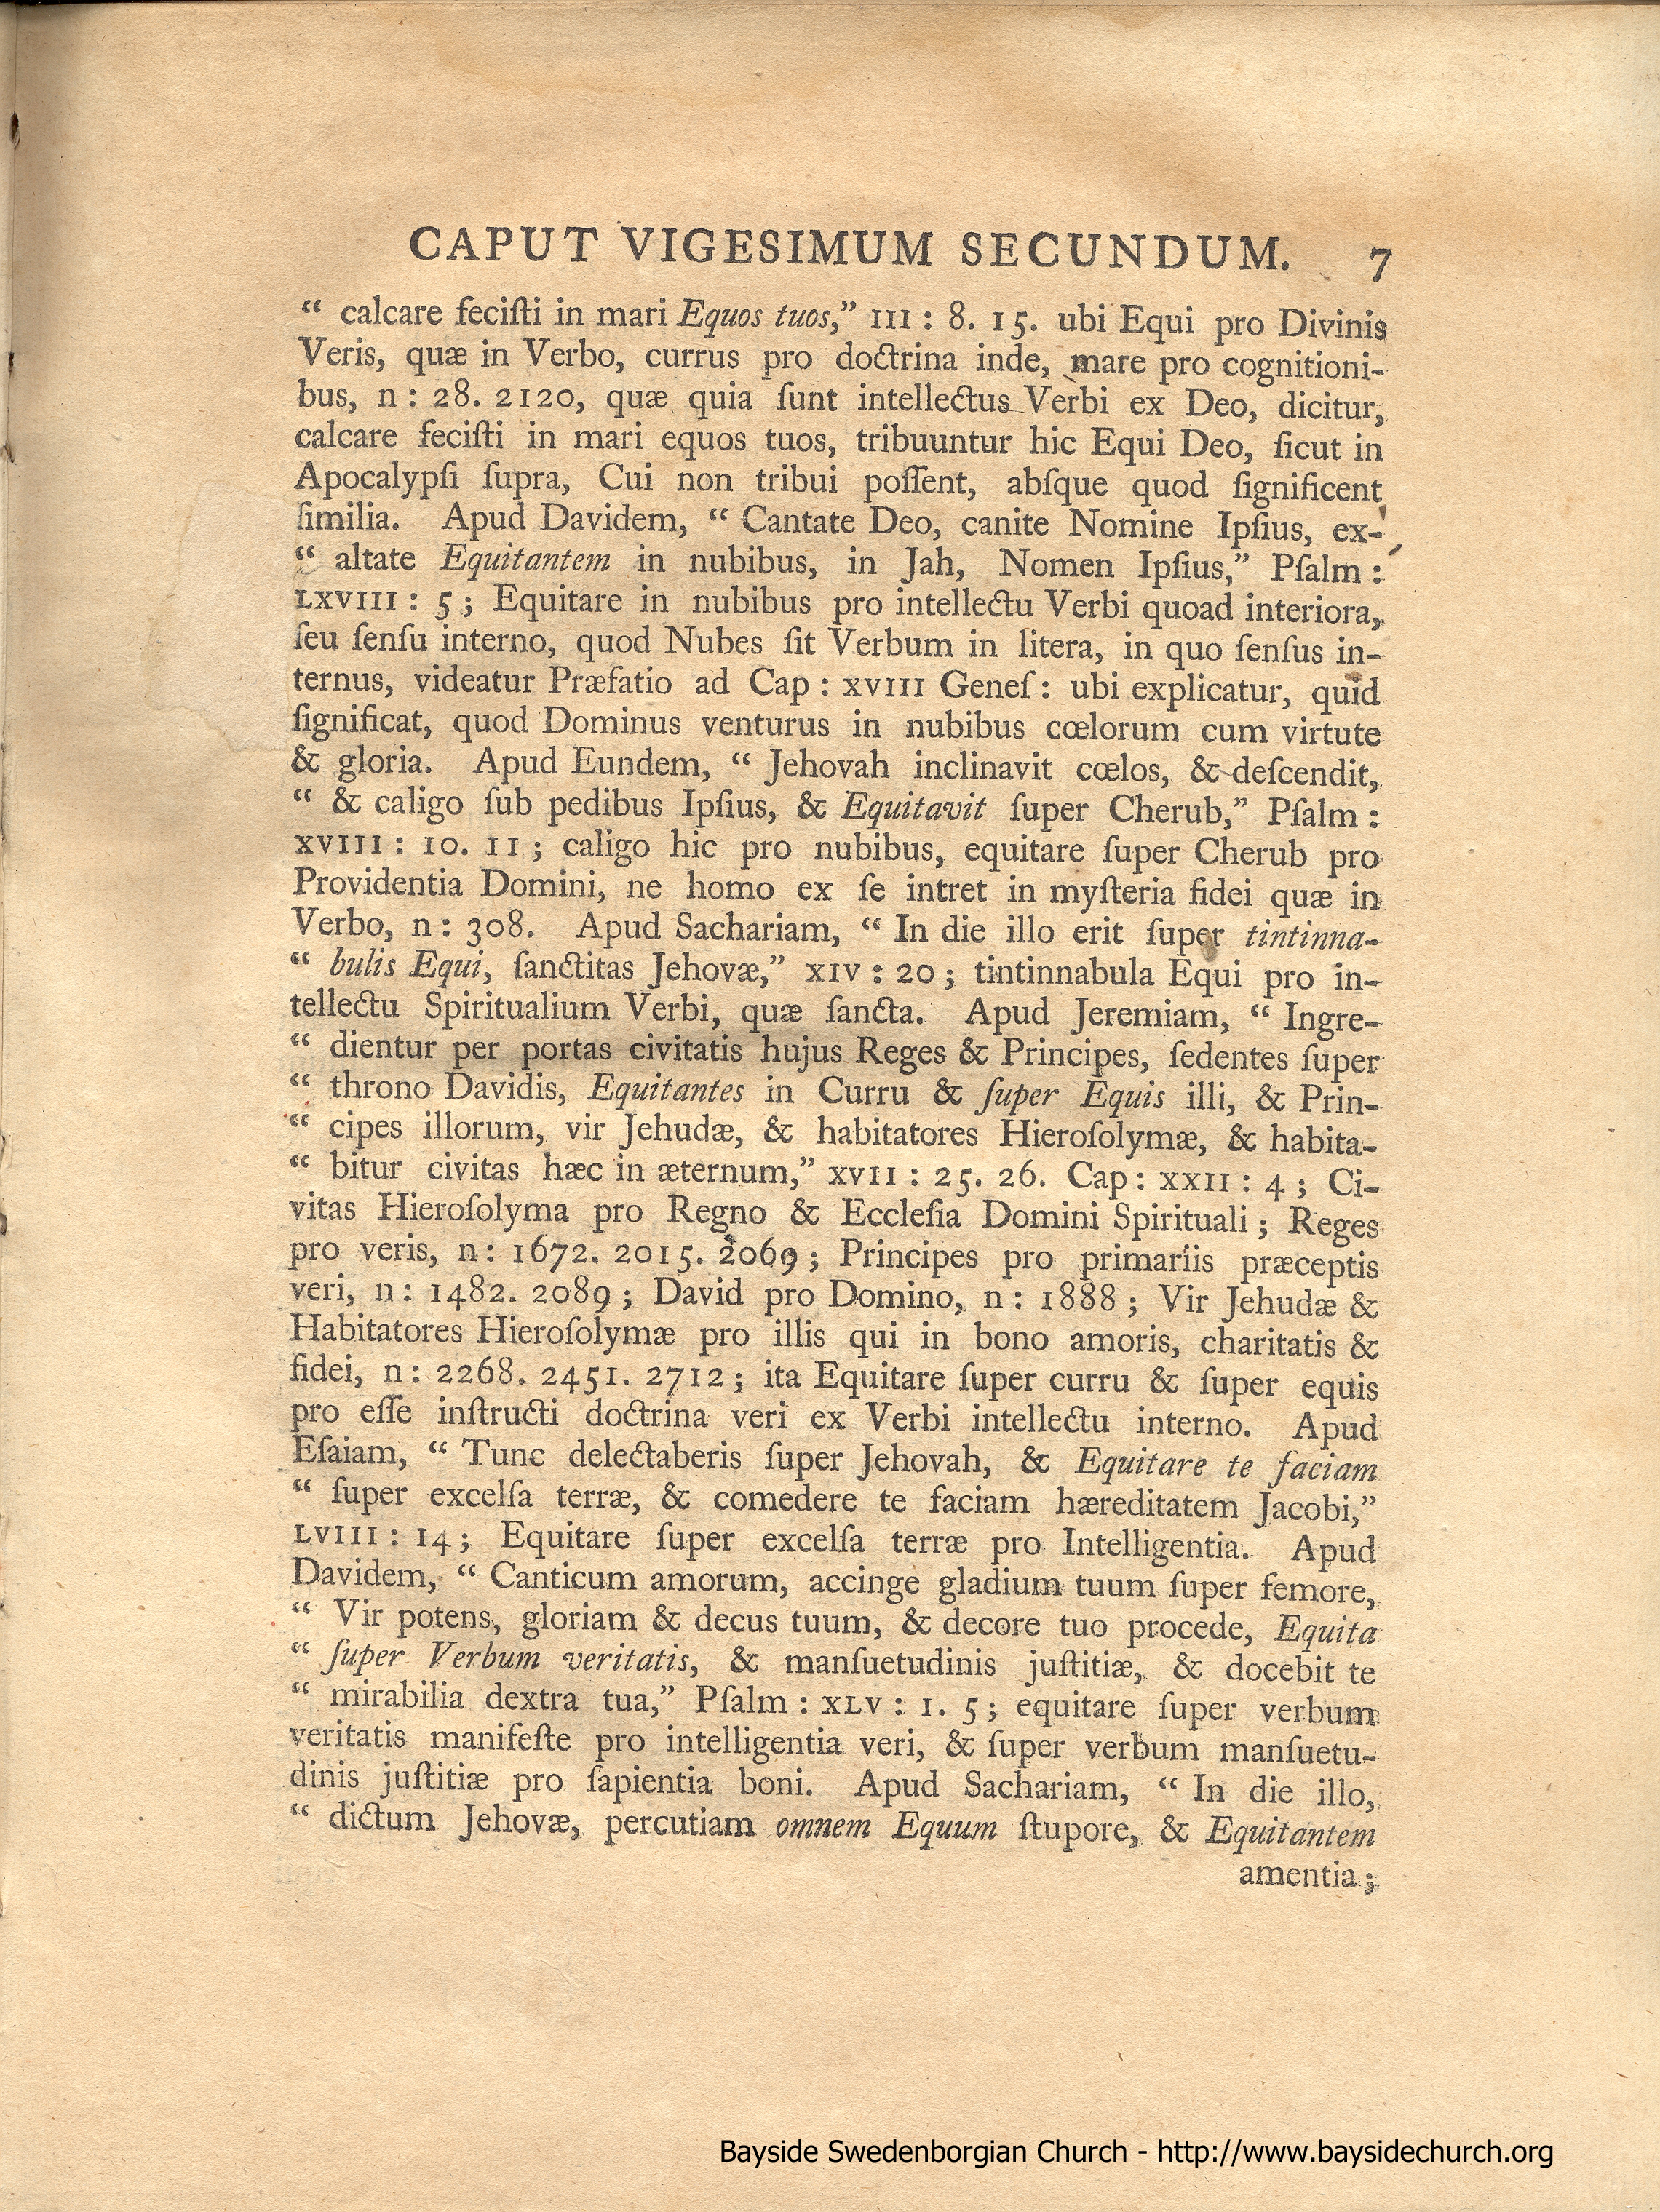 CAPUT VIGESIMUM SECUNDUM. 7
“ calcare feciſti in mari Equos tuos,” III : 8. 15. ubi Equi pro Divinis
Veris, quæ in Verbo, currus pro doctrina inde, mare pro cognitioni-
bus, n : 28. 2120, quæ quia ſunt intellectus Verbi ex Deo, dicitur,
calcare feciſti in mari equos tuos, tribuuntur hic Equi Deo, ſicut in
Apocalypſi ſupra, Cui non tribui poſſent, abſque quod ſignificent
ſimilia. Apud Davidem, “ Cantate Deo, canite Nomine Ipſius, ex-
“ altate Equitantem in nubibus, in Jah, Nomen Ipſius,” Pſalm :
LXVIII : 5 ; Equitare in nubibus pro intellectu Verbi quoad interiora,
ſeu ſenſu interno, quod Nubes ſit Verbum in litera, in quo ſenſus in-
ternus, videatur Præfatio ad Cap : XVIII Geneſ : ubi explicatur, quid
ſignificat, quod Dominus venturus in nubibus cœlorum cum virtute
& gloria. Apud Eundem, “ Jehovah inclinavit cœlos, & deſcendit,
“ & caligo ſub pedibus Ipſius, & Equitavit ſuper Cherub,” Pſalm :
XVIII : 10. 11 ; caligo hic pro nubibus, equitare ſuper Cherub pro
Providentia Domini, ne homo ex ſe intret in myſteria fidei quæ in
Verbo, n : 308. Apud Sachariam, “ In die illo erit ſuper tintinna-
“ bulis Equi, ſanctitas Jehovæ,” XIV : 20 ; tintinnabula Equi pro in-
tellectu Spiritualium Verbi, quæ ſancta. Apud Jeremiam, “ Ingre-
“ dientur per portas civitatis hujus Reges & Principes, ſedentes ſuper
“ throno Davidis, Equitantes in Curru & ſuper Equis illi, & Prin-
“ cipes illorum, vir Jehudæ, & habitatores Hieroſolymæ, & habita-
“ bitur civitas hæc in æternum,” XVII : 25. 26. Cap : XXII : 4 ; Ci-
vitas Hieroſolyma pro Regno & Eccleſia Domini Spirituali ; Reges
pro veris, n : 1672. 2015. 2069 ; Principes pro primariis præceptis
veri, n : 1482. 2089 ; David pro Domino, n : 1888 ; Vir Jehudæ &
Habitatores Hieroſolymæ pro illis qui in bono amoris, charitatis &
fidei, n : 2268. 2451. 2712 ; ita Equitare ſuper curru & ſuper equis
pro eſſe inſtructi doctrina veri ex Verbi intellectu interno. Apud
Eſaiam, “ Tunc delectaberis ſuper Jehovah, & Equitare te faciam
“ ſuper excelſa terræ, & comedere te faciam hæreditatem Jacobi,”
LVIII : 14 ; Equitare ſuper excelſa terræ pro Intelligentia. Apud
Davidem, “ Canticum amorum, accinge gladium tuum ſuper femore,
“ Vir potens, gloriam & decus tuum, & decore tuo procede, Equita
“ ſuper Verbum veritatis, & manſuetudinis juſtitiæ, & docebit te
“ mirabilia dextra tua,” Pſalm : XLV : 1. 5 ; equitare ſuper verbum
veritatis manifeſte pro intelligentia veri, & ſuper verbum manſuetu-
dinis juſtitiæ pro ſapientia boni. Apud Sachariam, “ In die illo,
“ dictum Jehovæ, percutiam omnem Equum ſtupore, & Equitantem
amentia ;
Bayside Swedenborgian Church - http://www.baysidechurch.org